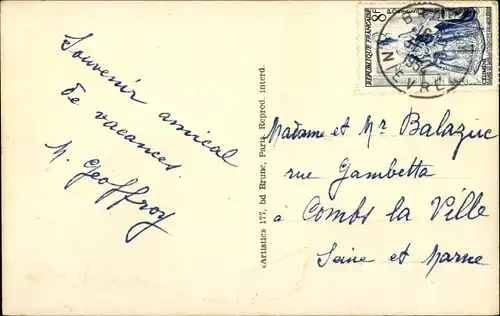 Souvenir amical
de vacances.
M. Geoffroy
«Artistic» 177, bd Brune, Paris. Reprod. interd.
8F
REPUBLIQUE FRANÇAISE
NIEVRE
Madame et Mr Balazuc
rue Gambetta
à Combs la Ville
Seine et Marne